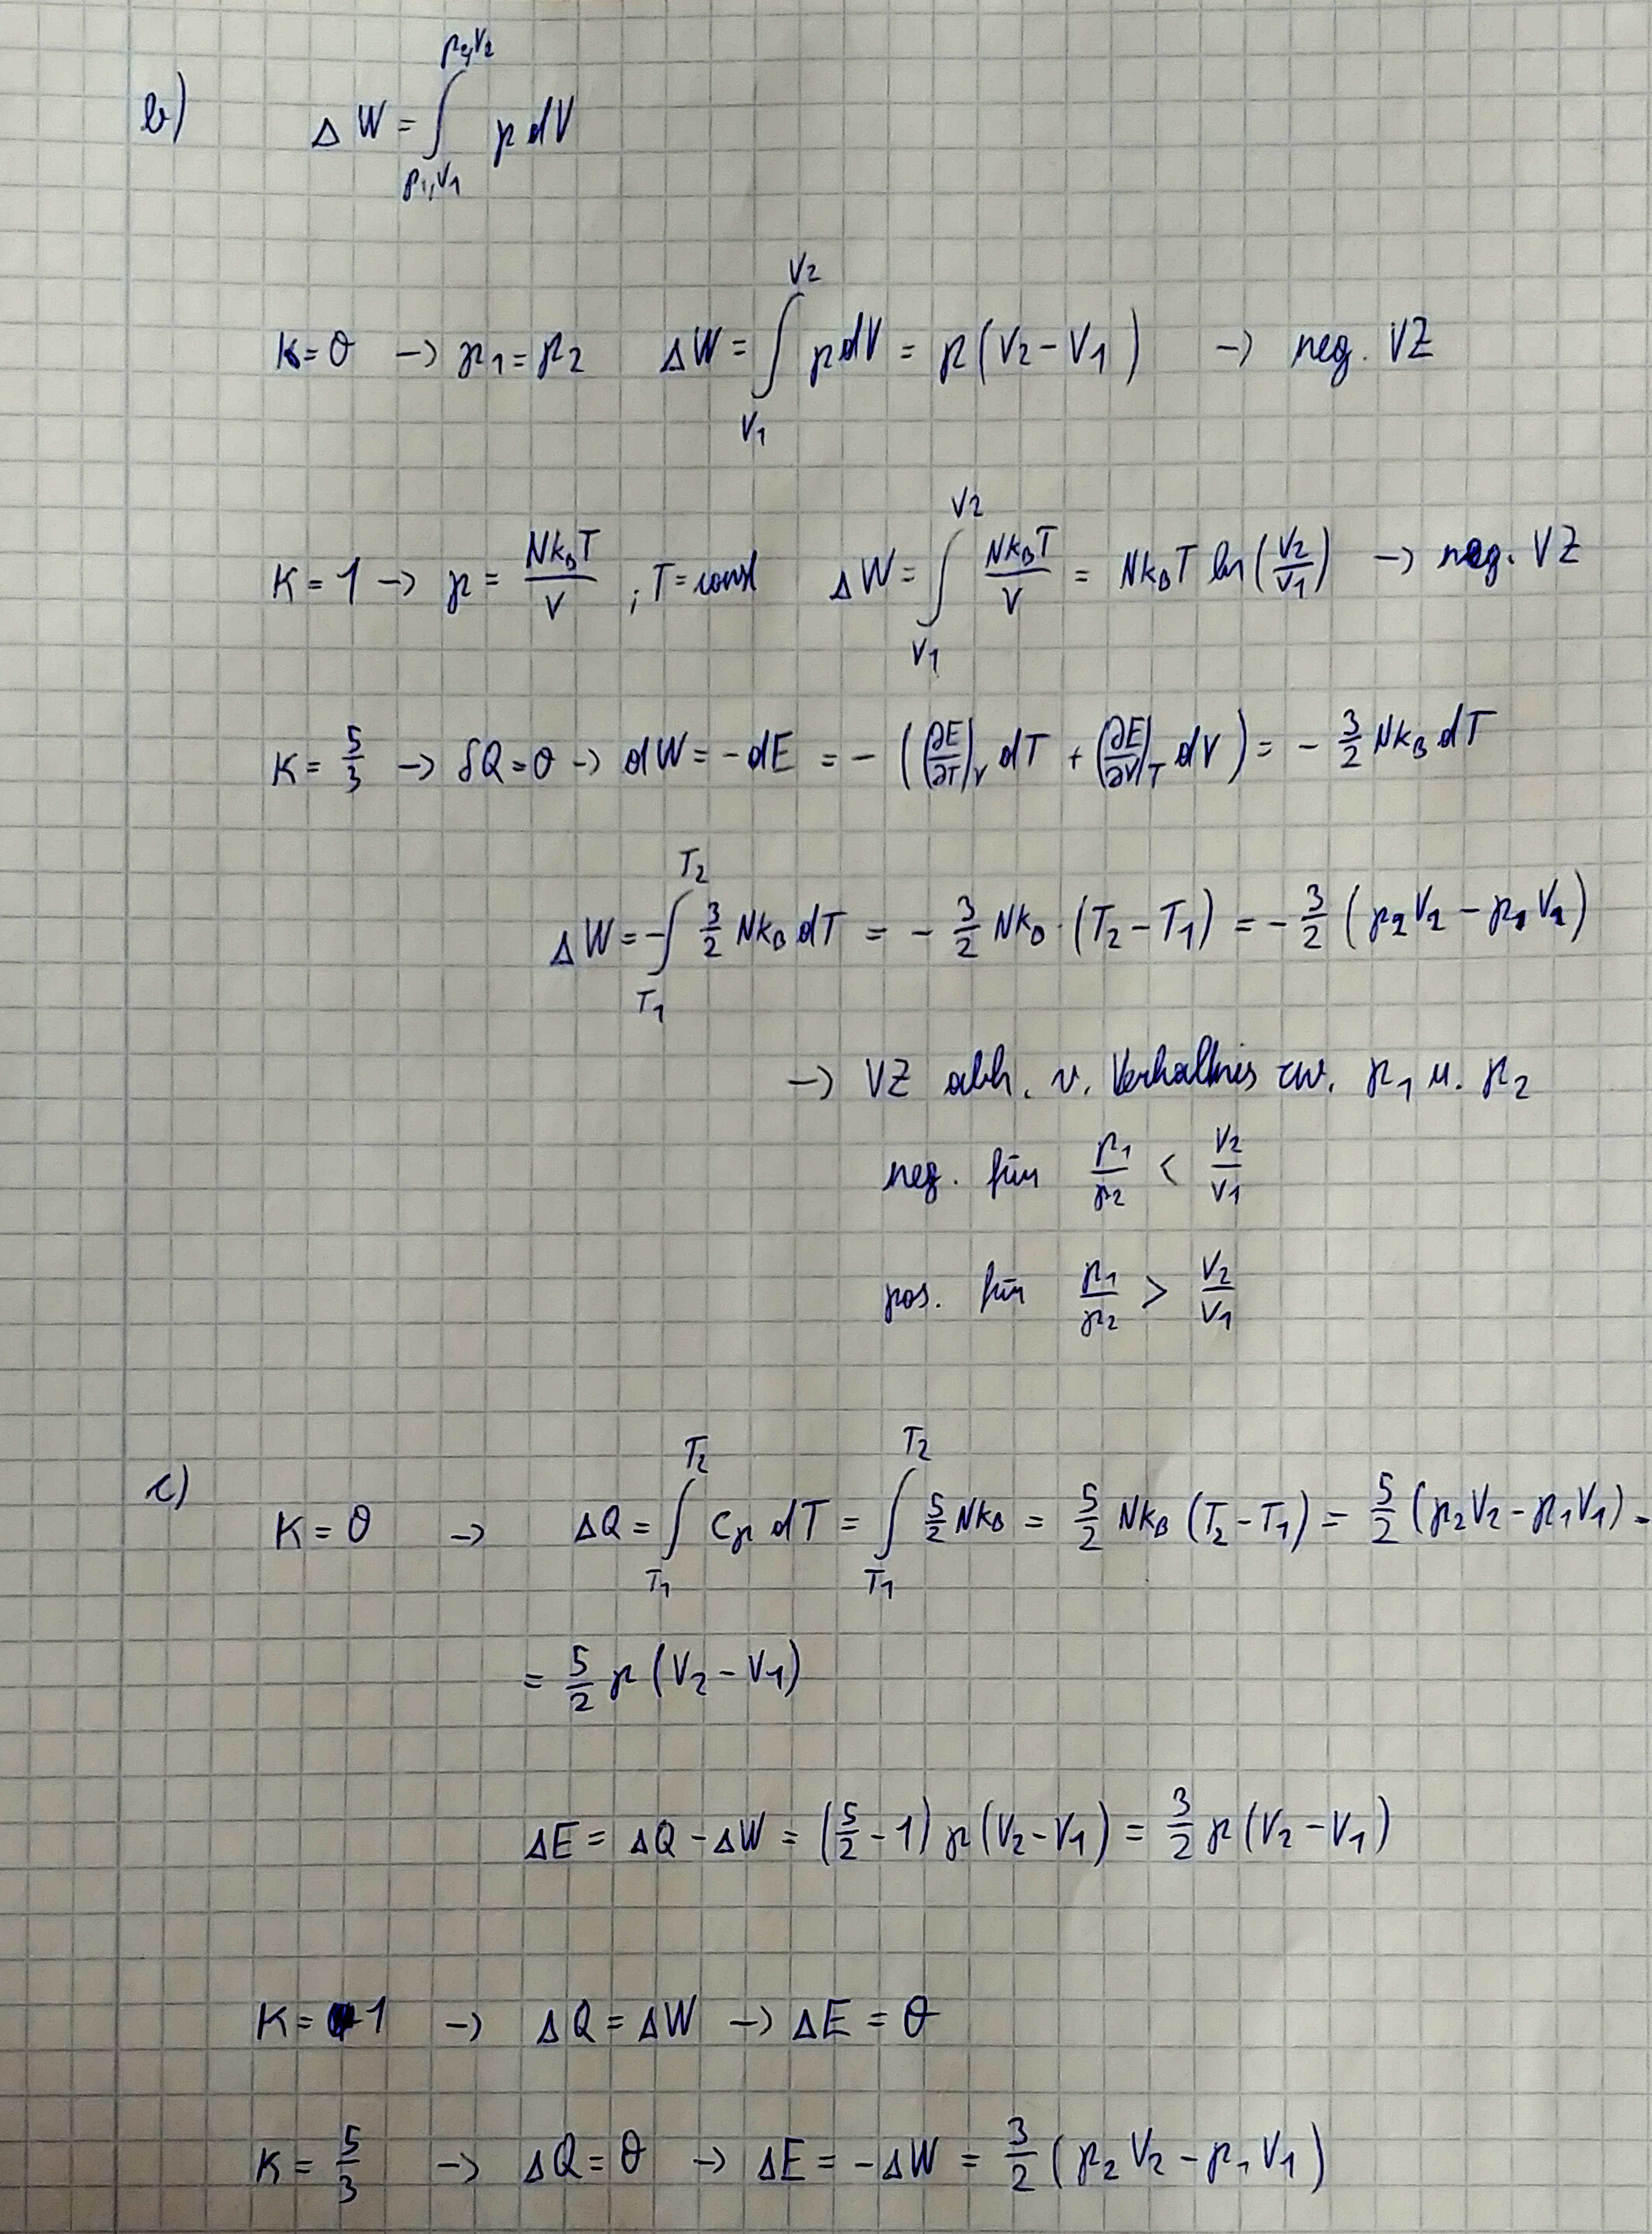 b) ΔW = ∫_{p₁,V₁}^{p₂,V₂} p dV
K = 0 → p₁ = p₂ ΔW = ∫_{V₁}^{V₂} p dV = p (V₂ − V₁) → neg. VZ
K = 1 → p = Nk_BT/V ; T = const ΔW = ∫_{V₁}^{V₂} Nk_BT/V = Nk_BT ln(V₂/V₁) → neg. VZ
K = 5/3 → δQ = 0 → dW = −dE = −((∂E/∂T)_V dT + (∂E/∂V)_T dV) = − 3/2 Nk_B dT
ΔW = −∫_{T₁}^{T₂} 3/2 Nk_B dT = − 3/2 Nk_B · (T₂ − T₁) = − 3/2 (p₂V₂ − p₁V₁)
→ VZ abh. v. Verhältnis zw. p₁ u. p₂
neg. für p₁/p₂ < V₂/V₁
pos. für p₁/p₂ > V₂/V₁
c) K = 0 → ΔQ = ∫_{T₁}^{T₂} C_p dT = ∫_{T₁}^{T₂} 5/2 Nk_B = 5/2 Nk_B (T₂ − T₁) = 5/2 (p₂V₂ − p₁V₁) =
= 5/2 p (V₂ − V₁)
ΔE = ΔQ − ΔW = (5/2 − 1) p (V₂ − V₁) = 3/2 p (V₂ − V₁)
K = 1 → ΔQ = ΔW → ΔE = 0
K = 5/3 → ΔQ = 0 → ΔE = −ΔW = 3/2 (p₂V₂ − p₁V₁)